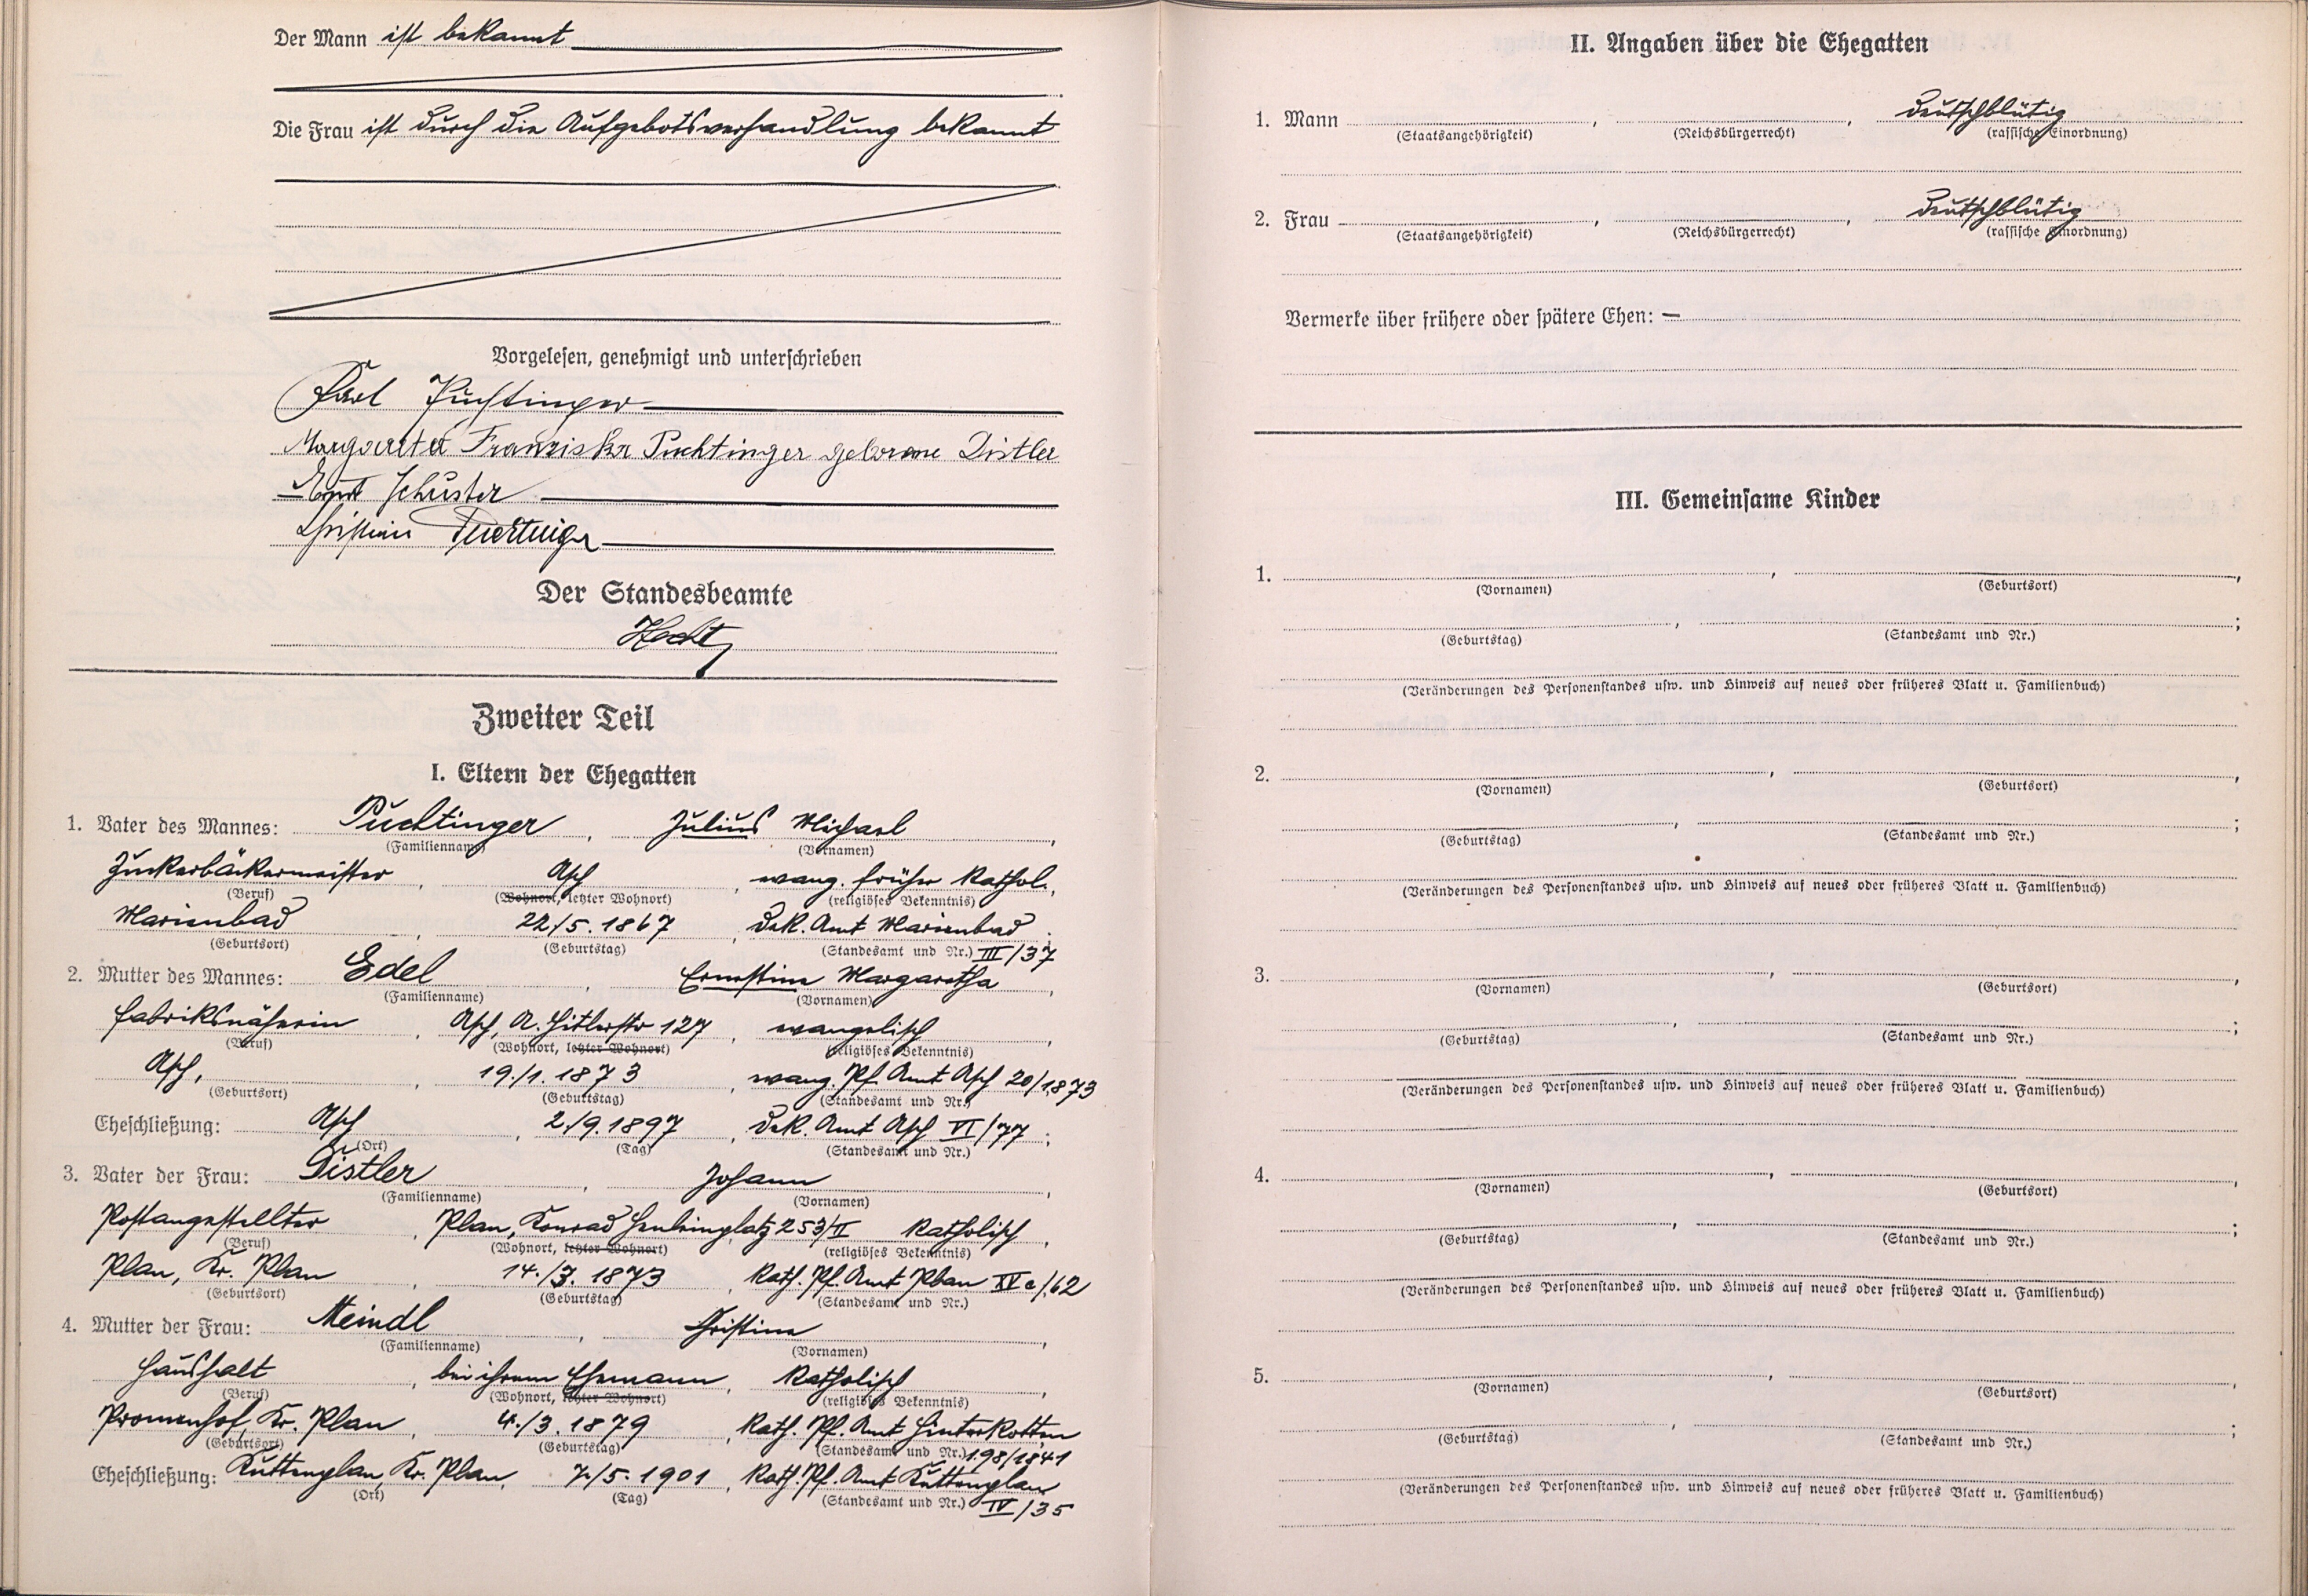 Der Mann ist bekannt
Die Frau ist durch die Aufgebotsverhandlung bekannt
Vorgelesen, genehmigt und unterschrieben
Karl Puchtinger
Margareta Franziska Puchtinger geborene Distler
Ernst Schuster
Der Standesbeamte
Hecht
Zweiter Teil
I. Eltern der Ehegatten
1. Vater des Mannes: Puchtinger, Julius Michael,
(Familienname) (Vornamen)
Zuckerbäckermeister, Asch, evang. früher kathol.,
(Beruf) (Wohnort, letzter Wohnort) (religiöses Bekenntnis)
Marienbad, 22./5. 1867, Dek. Amt Marienbad
(Geburtsort) (Geburtstag) (Standesamt und Nr.) III/37
2. Mutter des Mannes: Edel, Ernestine Margaretha,
(Familienname) (Vornamen)
Fabriksnäherin, Asch, A. Hitlerstr 127, evangelisch,
(Beruf) (Wohnort, letzter Wohnort) (religiöses Bekenntnis)
Asch, 19./1. 1873, evang. Pf. Amt Asch 20/1873
(Geburtsort) (Geburtstag) (Standesamt und Nr.)
Eheschließung: Asch, 2./9. 1897, Dek. Amt Asch VI/77;
(Ort) (Tag) (Standesamt und Nr.)
3. Vater der Frau: Distler, Johann,
(Familienname) (Vornamen)
Postangestellter, Plan, Konrad Henleinplatz 253/II katholisch,
(Beruf) (Wohnort, letzter Wohnort) (religiöses Bekenntnis)
Plan, Kr. Plan, 14./3. 1873, Kath. Pf. Amt Plan XVa/62
(Geburtsort) (Geburtstag) (Standesamt und Nr.)
4. Mutter der Frau: Meindl, Christine,
(Familienname) (Vornamen)
Haushalt, bei ihrem Ehemann, katholisch,
(Beruf) (Wohnort, letzter Wohnort) (religiöses Bekenntnis)
Promenhof, Kr. Plan, 4./3. 1879, Kath. Pf. Amt Hinterkotten
(Geburtsort) (Geburtstag) (Standesamt und Nr.) 198/1841
Eheschließung: Kuttenplan, Kr. Plan, 7./5. 1901, Kath. Pf. Amt Kuttenplan
(Ort) (Tag) (Standesamt und Nr.) IV/35
II. Angaben über die Ehegatten
1. Mann , , deutschblütig
(Staatsangehörigkeit) (Reichsbürgerrecht) (rassische Einordnung)
2. Frau , , deutschblütig
(Staatsangehörigkeit) (Reichsbürgerrecht) (rassische Einordnung)
Vermerke über frühere oder spätere Ehen: —
III. Gemeinsame Kinder
1. , ,
(Vornamen) (Geburtsort)
, ;
(Geburtstag) (Standesamt und Nr.)
(Veränderungen des Personenstandes usw. und Hinweis auf neues oder früheres Blatt u. Familienbuch)
2. , ,
(Vornamen) (Geburtsort)
, ;
(Geburtstag) (Standesamt und Nr.)
(Veränderungen des Personenstandes usw. und Hinweis auf neues oder früheres Blatt u. Familienbuch)
3. , ,
(Vornamen) (Geburtsort)
, ;
(Geburtstag) (Standesamt und Nr.)
(Veränderungen des Personenstandes usw. und Hinweis auf neues oder früheres Blatt u. Familienbuch)
4. , ,
(Vornamen) (Geburtsort)
, ;
(Geburtstag) (Standesamt und Nr.)
(Veränderungen des Personenstandes usw. und Hinweis auf neues oder früheres Blatt u. Familienbuch)
5. , ,
(Vornamen) (Geburtsort)
, ;
(Geburtstag) (Standesamt und Nr.)
(Veränderungen des Personenstandes usw. und Hinweis auf neues oder früheres Blatt u. Familienbuch)